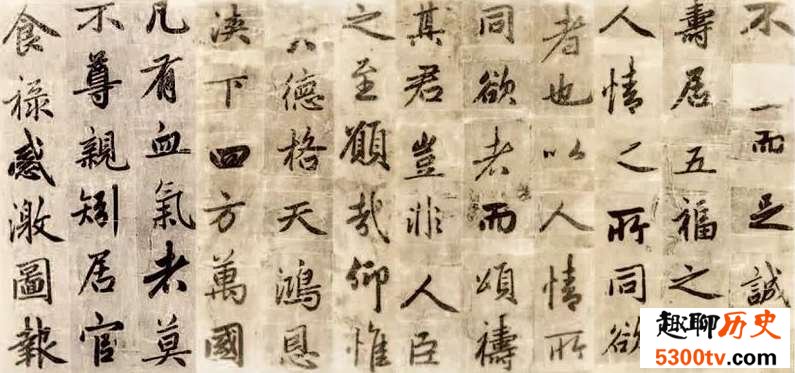 不一而足誠
壽居五福之
人情之所同欲
者也以人情所
同欲者而頌禱
其君豈非人臣
之至願哉仰惟
德格天鴻恩
浹下四方萬國
凡有血氣者莫
不尊親矧居官
食祿感激圖報
趣聊历史
5300tv.com